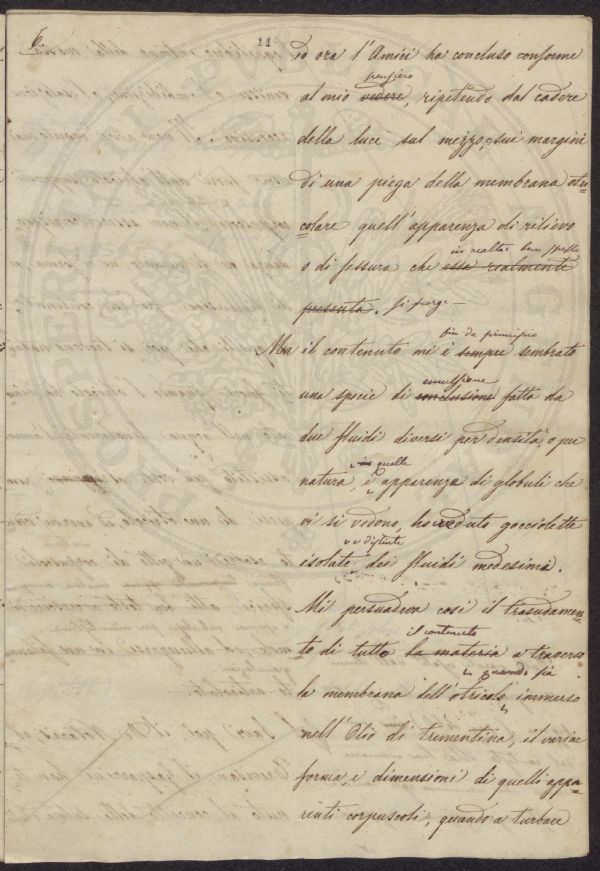 6.
11
io ora l'Amici ha concluso conforme
pensiero
al mio vedere, ripetendo dal cadere
della luce sul mezzo, e sui margini
di una piega della membrana otri-
colare quell'apparenza di rilievo
in realtà ben spesso
o di fessura che essa realmente
presenta. si porge —
fin da principio
Ma il contenuto mi è sempre sembrato
emulsione
una specie di conclusione fatta da
due fluidi diversi per densità, o per
in quelle
natura, e apparenze di globuli che
vi si vedono, ho veduto gocciolette
e distinte
isolate dei fluidi medesimi.
Mi persuadeva così il trasudamen-
il contenuto
to di tutto la materia a traverso
quando sia
la membrana dell'otricolo, immerso
nell'Olio di trementina, il variar
forma, e dimensioni di quelli appa-
renti corpuscoli, quando a turbare